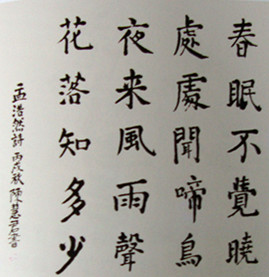 春眠不覺曉
處處聞啼鳥
夜来風雨聲
花落知多少
孟浩然詩 丙戌秋 陳慧君書